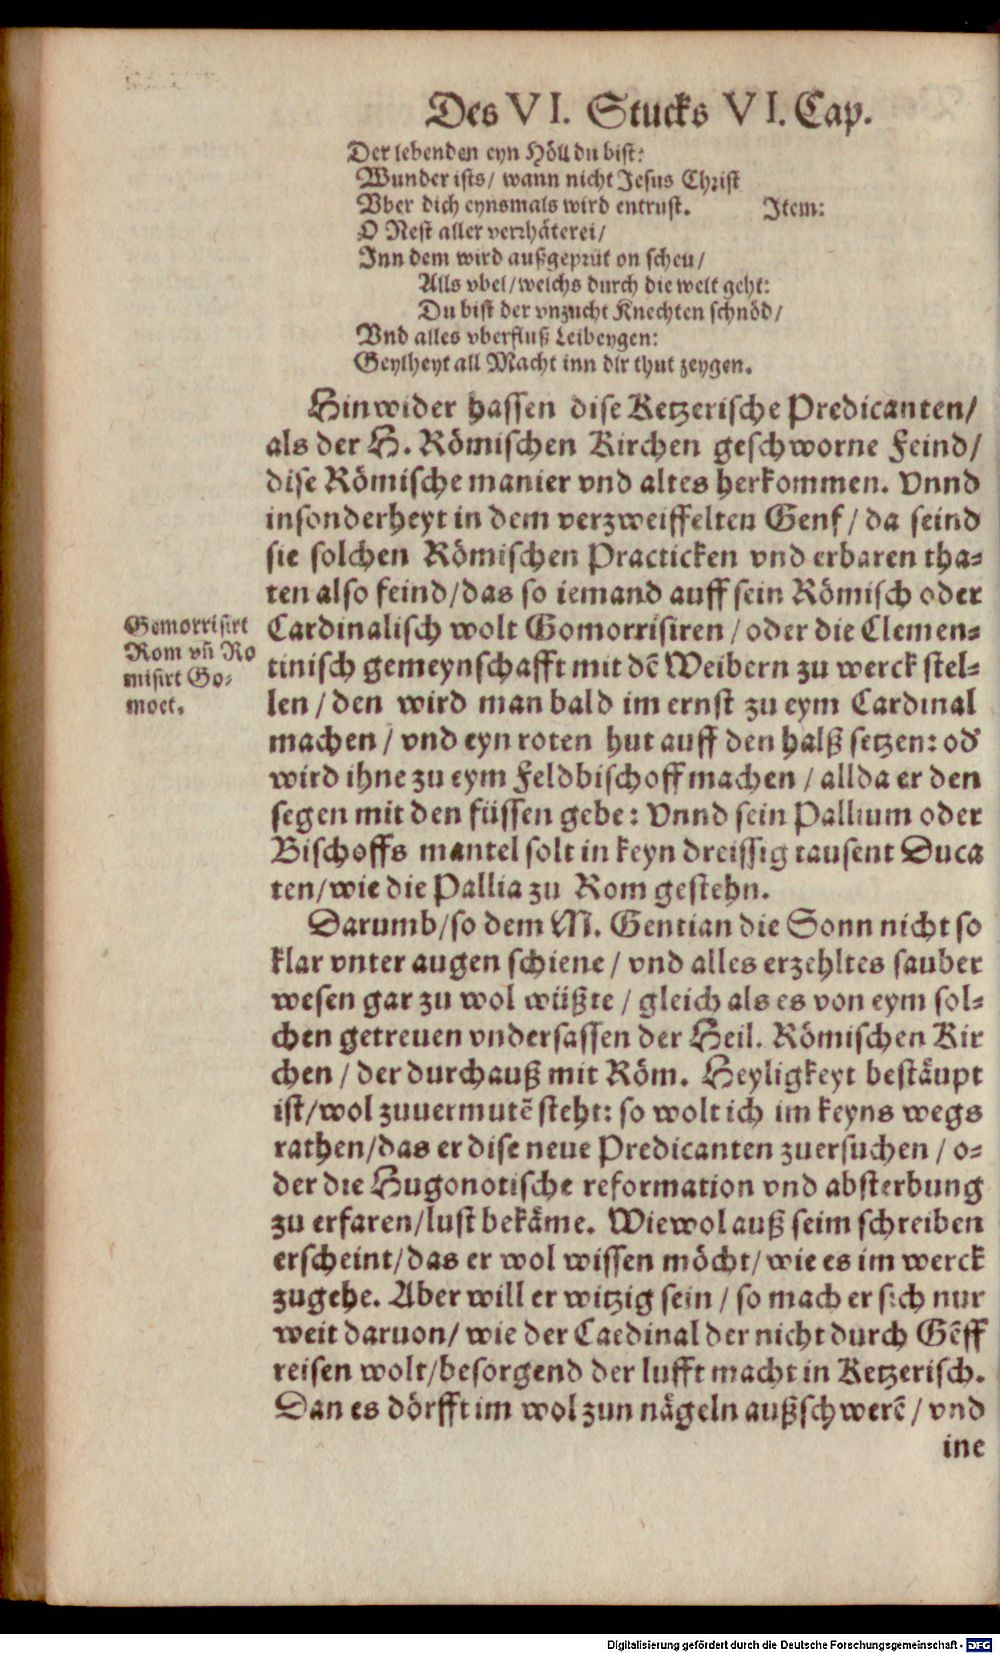 Des VI. Stucks VI. Cap.
Der lebenden eyn Höll du bist:
Wunder ists/ wann nicht Jesus Christ
Vber dich eynsmals wird entrust. Item:
O Nest aller verrhäterei/
Inn dem wird außgeprüt on scheu/
Alls vbel/welchs durch die welt geht:
Du bist der vnzucht Knechten schnöd/
Vnd alles vberfluß Leibeygen:
Geylheyt all Macht inn dir thut zeygen.
Hinwider hassen dise Ketzerische Predicanten/
als der H. Römischen Kirchen geschworne Feind/
dise Römische manier vnd altes herkommen. Vnnd
insonderheyt in dem verzweiffelten Genf/ da seind
sie solchen Römischen Practicken vnd erbaren tha⸗
ten also feind/das so iemand auff sein Römisch oder
Gemorrisirt
Rom vñ Ro
misirt Go⸗
moet.
Cardinalisch wolt Gomorrisiren/oder die Clemen⸗
tinisch gemeynschafft mit dẽ Weibern zu werck stel⸗
len/den wird man bald im ernst zu eym Cardinal
machen/ vnd eyn roten hut auff den halß setzen: od'
wird ihne zu eym Feldbischoff machen/allda er den
segen mit den füssen gebe: Vnnd sein Pallium oder
Bischoffs mantel solt in keyn dreissig tausent Duca
ten/wie die Pallia zu Rom gestehn.
Darumb/so dem M. Gentian die Sonn nicht so
klar vnter augen schiene/ vnd alles erzehltes sauber
wesen gar zu wol wüßte/ gleich als es von eym sol⸗
chen getreuen vndersassen der Heil. Römischen Kir
chen/ der durchauß mit Röm. Heyligkeyt bestäupt
ist/wol zuuermutẽ steht: so wolt ich im keyns wegs
rathen/das er dise neue Predicanten zuersuchen/ o⸗
der die Hugonotische reformation vnd absterbung
zu erfaren/lust bekäme. Wiewol auß seim schreiben
erscheint/das er wol wissen möcht/wie es im werck
zugehe. Aber will er witzig sein/ so mach er sich nur
weit daruon/ wie der Caedinal der nicht durch Gẽff
reisen wolt/besorgend der lufft macht in Ketzerisch.
Dan es dörfft im wol zun nägeln außschwerẽ/ vnd
ine
Digitalisierung gefördert durch die Deutsche Forschungsgemeinschaft - DFG